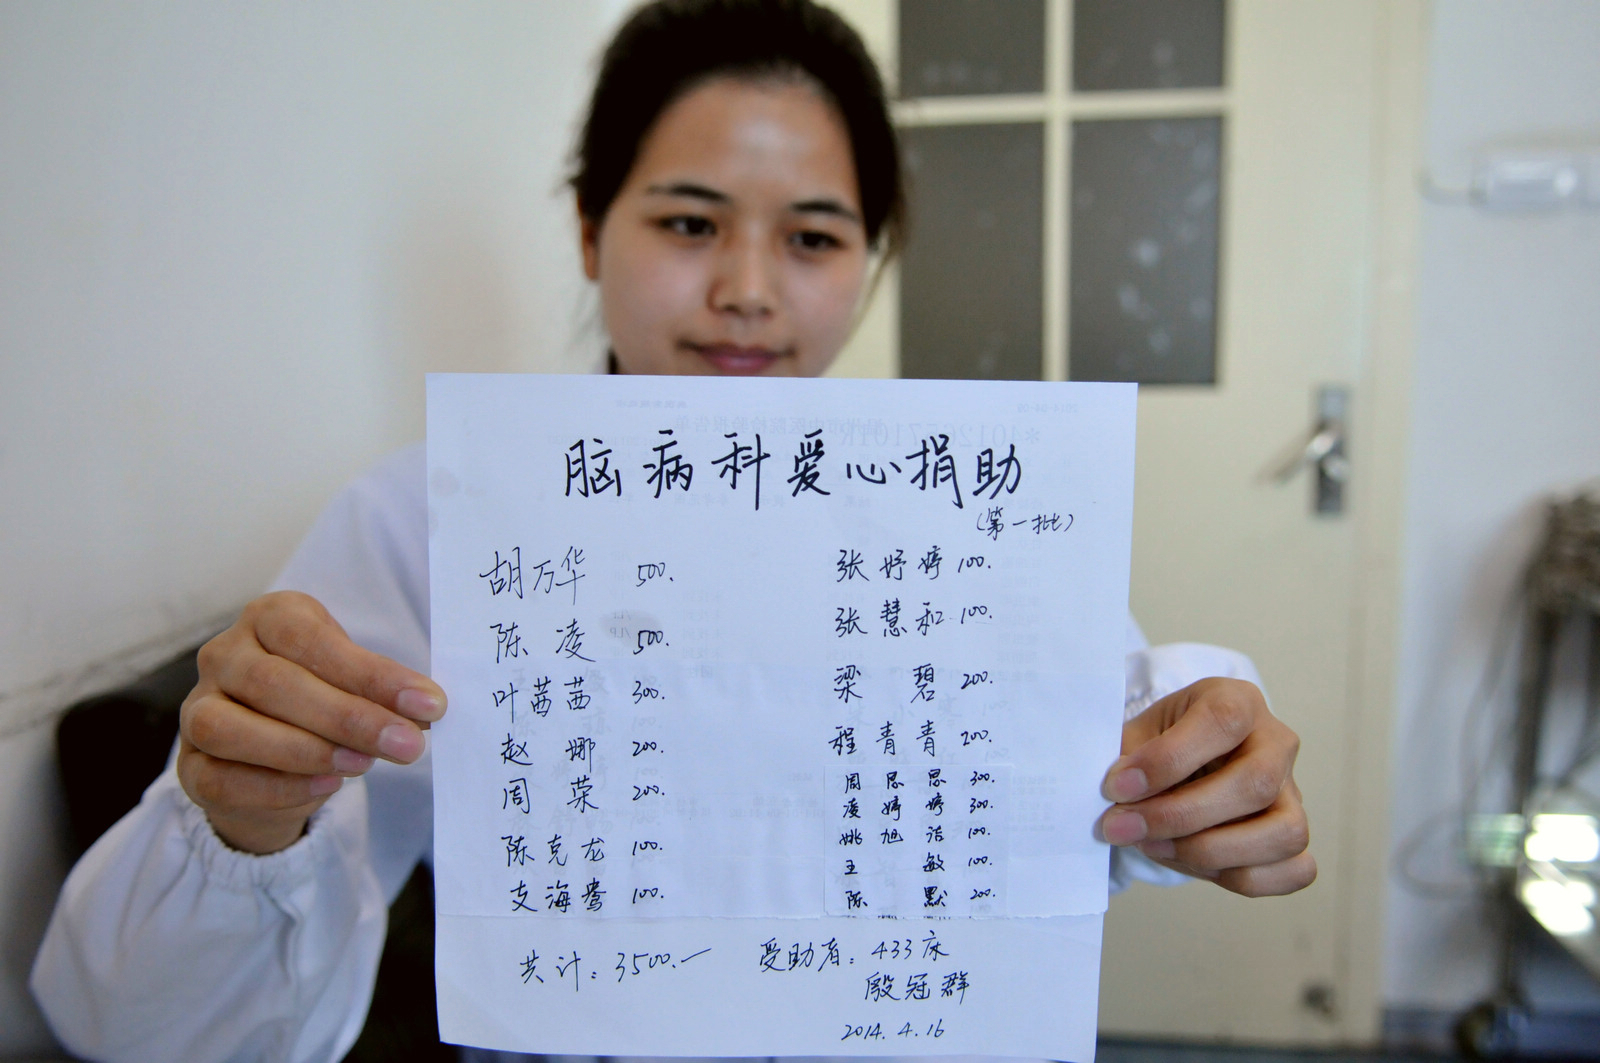 脑病科爱心捐助
（第一批）
胡万华 500.
陈凌 500.
叶茜茜 300.
赵娜 200.
周荣 200.
陈克龙 100.
支海鸯 100.
张妤婷 100.
张慧和 100.
梁碧 200.
程青青 200.
周思思 300.
凌婷婷 300.
姚旭洁 100.
王敏 100.
陈默 200.
共计：3500.一
受助者：433床
殷冠群
2014.4.16